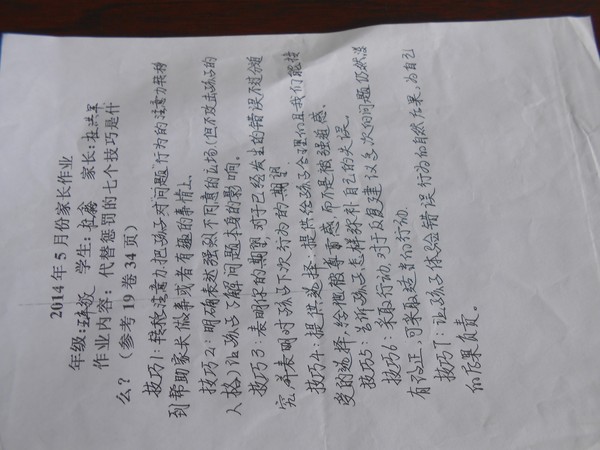 2014年5月份家长作业
年级:五年级 学生:杜鑫 家长:杜洪军
作业内容:代替惩罚的七个技巧是什
么?(参考19卷34页)
技巧1:转移注意力,把孩子对"问题"行为的注意力转移
到帮助家长做事或者有趣的事情上。
技巧2:明确表达强烈不同意的立场(但不攻击孩子的
人格)让孩子了解问题本身的影响。
技巧3:表明你的期望,对于已经发生的错误不过分追
究,并表明对孩子下次行为的期望
技巧4:提供选择:提供给孩子合理们且我们能接
受的选择,给他被尊重感,而不是被强迫感。
技巧5:告诉孩子怎样弥补自己的失误。
技巧6:采取行动,对于反复建议多次的问题仍然没
有改正,可采取适当的行动
技巧7:让孩子体验错误行为的自然后果,为自己
的后果负责。